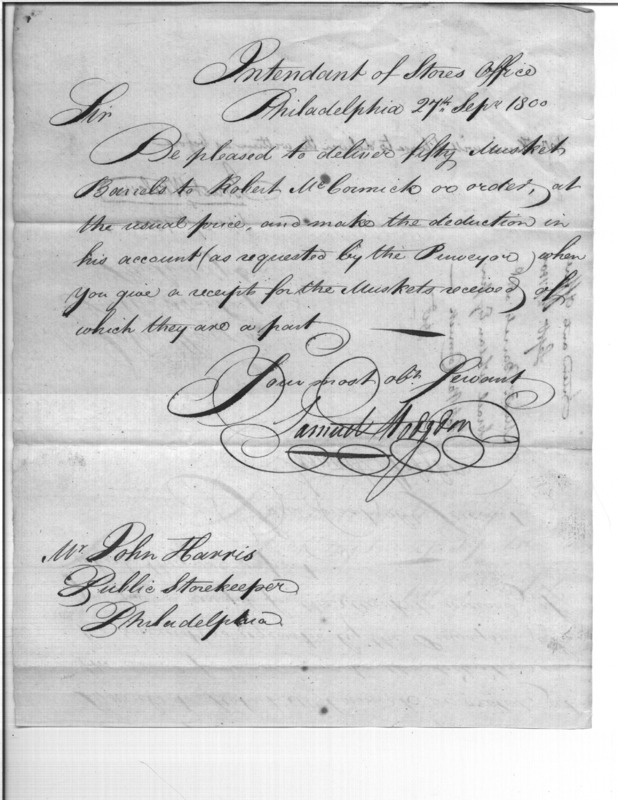 Intendant of Stores Office
Philadelphia 27th Sepr 1800
Sir
Be pleased to deliver fifty Musket
Barrels to Robert McCormick or order, at
the usual price, and make the deduction in
his account (as requested by the Purveyor) when
you give a receipt for the Muskets received, of
which they are a part
Your most obt. Servant
Samuel Hodgdon
Mr John Harris
Public Storekeeper
Philadelphia